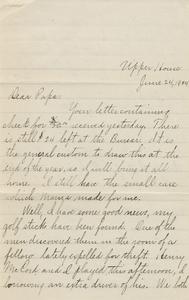 Upper House
June 24, 1904
Dear Papa:
Your letter containing
check for received yesterday. There
is still $24 left at the Bursar. It is
the general custom to draw this at the
end of the year, so I will bring it all
home. I still have the small case
which Mama made for me.
Well, I had some good news, my
golf sticks have been found. One of the
men discovered them in the room of a
fellow lately expelled for theft. Henry
McCord and I played this afternoon, I
borrowing an extra driver of his. We both